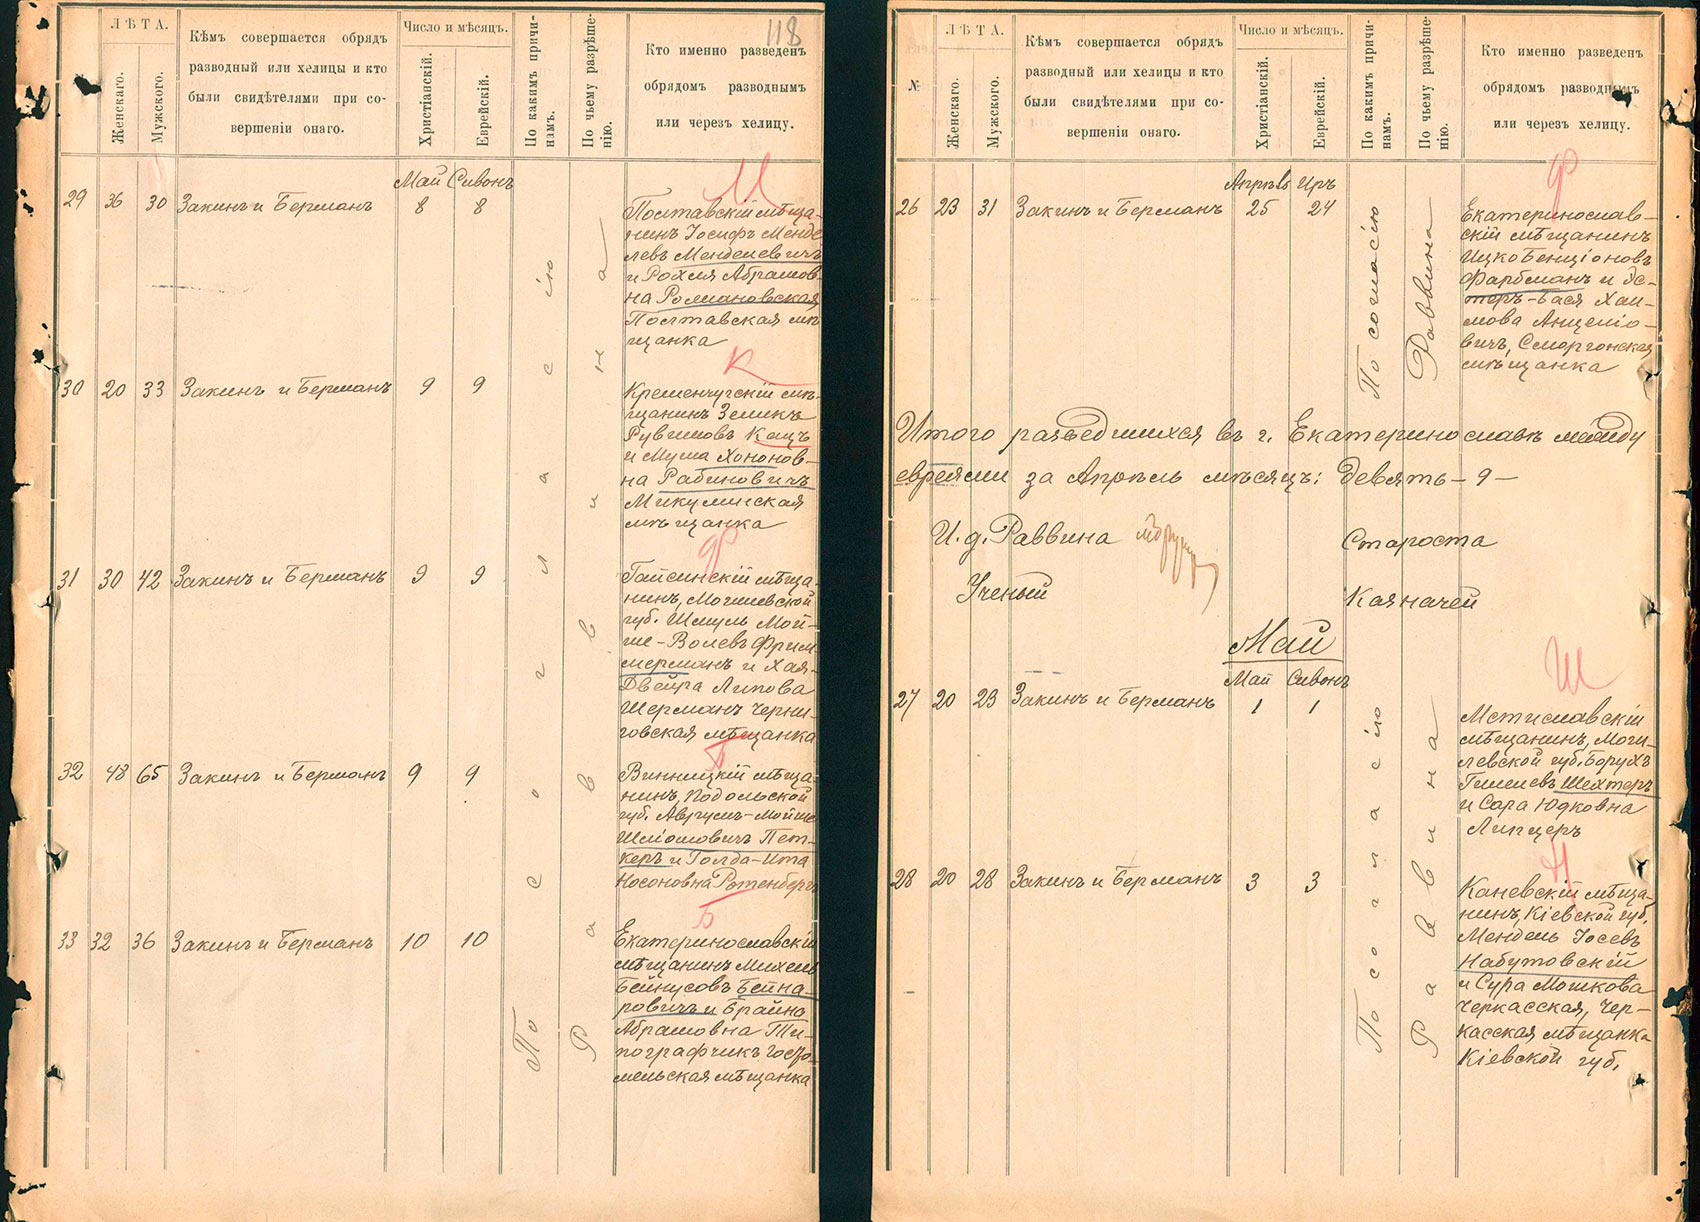 118
ЛѢТА.
Женскаго.
Мужскаго.
Кѣмъ совершается обрядъ
разводный или хелицы и кто
были свидѣтелями при со-
вершеніи онаго.
Число и мѣсяцъ.
Христіанскій.
Еврейскій.
По какимъ причи-
намъ.
По чьему разрѣше-
нію.
Кто именно разведенъ
обрядомъ разводнымъ
или черезъ хелицу.
Май Сивонъ
29 36 30 Закинъ и Берманъ 8 8
М
Полтавскій мѣща-
нинъ Іосифъ Менде
левъ Менделевичъ
и Рохля Абрамов
на Романовская
Полтавская мѣ
щанка
30 20 33 Закинъ и Берманъ 9 9
К
Кременчугскій мѣ-
щанинъ Зеликъ
Рувимовъ Кацъ
и Муша Хононов-
на Рабиновичъ
Микулинская
мѣщанка
31 30 42 Закинъ и Берманъ 9 9
Ф
Гайсинскій мѣща-
нинъ, Могилевской
губ. Шмуль Мой-
ше-Волевъ Фрим
мерманъ и Хая-
Двейра Липова
Шерманъ Черни-
говская мѣщанка
32 48 65 Закинъ и Берманъ 9 9
Винницкій мѣща-
нинъ, Подольской
губ. Аврумъ-Мойше
Шліомовичъ Пет-
керъ и Голда-Ита
Носоновна Ротенбергъ
33 32 36 Закинъ и Берманъ 10 10
Б
Екатеринославскій
мѣщанинъ Михель
Бейнусовъ Бейна-
ровичъ и Брайна
Абрамовна Ти-
пографчикъ Гос
мельская мѣщанка
По согласію
Раввина
№
ЛѢТА.
Женскаго.
Мужскаго.
Кѣмъ совершается обрядъ
разводный или хелицы и кто
были свидѣтелями при со-
вершеніи онаго.
Число и мѣсяцъ.
Христіанскій.
Еврейскій.
По какимъ причи-
намъ.
По чьему разрѣше-
нію.
Кто именно разведенъ
обрядомъ разводнымъ
или черезъ хелицу.
Апрѣль Иръ
26 23 31 Закинъ и Берманъ 25 24
По согласію
Раввина
Ф
Екатеринослав-
скій мѣщанинъ
Ицко Бенціоновъ
Фарбманъ и Эс-
теръ-Бася Хаи-
мова Анцеліо-
вичъ, Сморгонская
мѣщанка
Итого разведшихся въ г. Екатеринославѣ между
евреями за Апрѣль мѣсяцъ: девять-9-
И. д. Раввина
Староста
Ученый
Казначей
Май
Май Сивонъ
27 20 23 Закинъ и Берманъ 1 1
Ш
Мстиславскій
мѣщанинъ, Моги-
левской губ. Борухъ
Гилелевъ Шехтеръ
и Сара Юдковна
Липцеръ
28 20 28 Закинъ и Берманъ 3 3
Н
Каневскій мѣща
нинъ, Кіевской губ.
Мендель Іосевъ
Набутовскій
и Сура Мошкова
Черкасская, Чер-
касская мѣщанка
Кіевской губ.
По согласію
Раввина